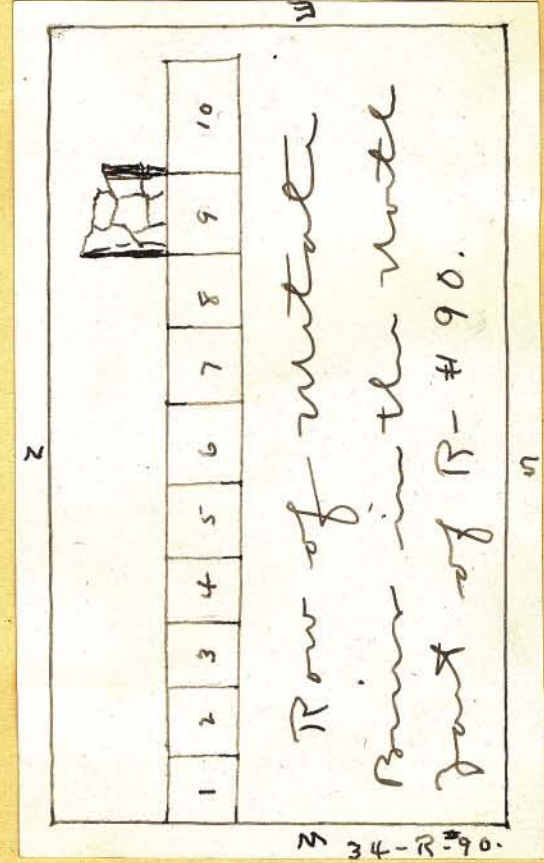 N
1 2 3 4 5 6 7 8 9 10
W
E
Row of Metate
Bins in the North
part of R-#90.
S
34-R-#90.